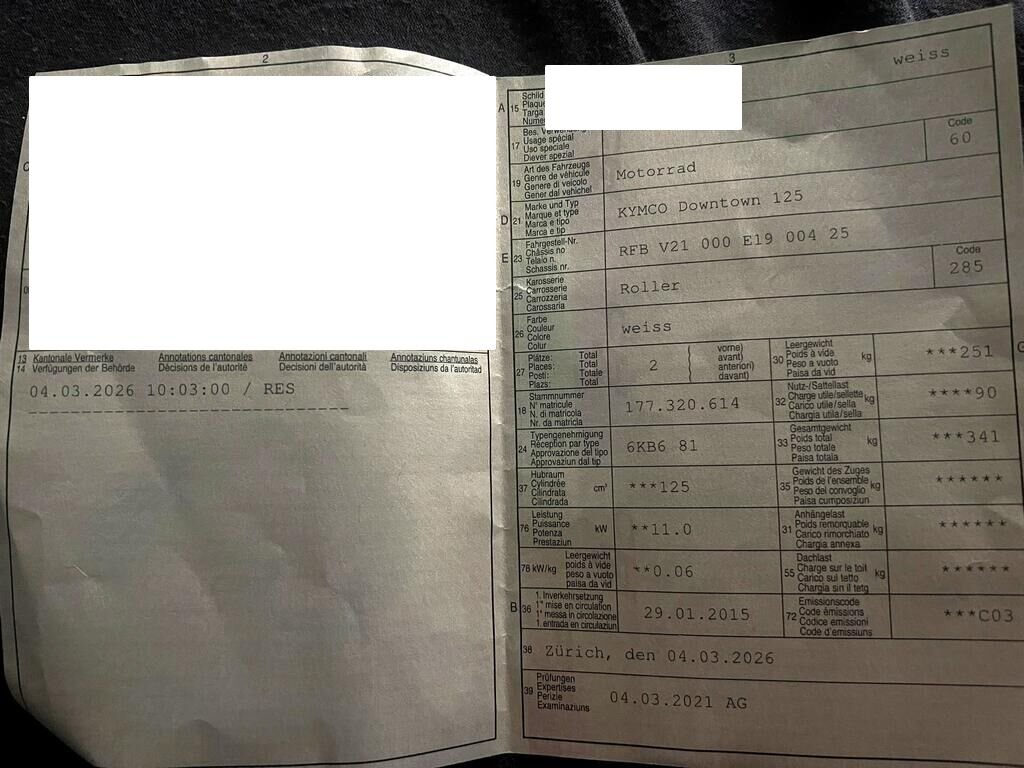 2
13 Kantonale Vermerke Annotations cantonales Annotazioni cantonali Annotaziuns chantunalas
14 Verfügungen der Behörde Décisions de l'autorité Decisioni dell'autorità Disposiziuns da l'autoritad
04.03.2026 10:03:00 / RES
3
weiss
A 15 Schild
Plaque
Targa
17 Bes. Verwendung
Usage spécial
Uso speciale
Diever spezial
Code
60
19 Art des Fahrzeugs
Genre de véhicule
Genere di veicolo
Gener dal vehichel
Motorrad
D 21 Marke und Typ
Marque et type
Marca e tipo
Marca e tip
KYMCO Downtown 125
E 23 Fahrgestell-Nr.
Châssis no
Telaio n.
Schassis nr.
RFB V21 000 E19 004 25
25 Karosserie
Carrosserie
Carrozzeria
Carossaria
Roller
Code
285
26 Farbe
Couleur
Colore
Colur
weiss
27 Plätze: Total
Places: Total
Posti: Totale
Plazs: Total
2
vorne)
avant)
anteriori)
davant)
30 Leergewicht
Poids à vide
Peso a vuoto
Paisa da vid
kg
***251
18 Stammnummer
N° matricule
N. di matricola
Nr. da matricla
177.320.614
32 Nutz-/Sattellast
Charge utile/sellette
Carico utile/sella
Chargia utila/sella
kg
****90
24 Typengenehmigung
Réception par type
Approvazione del tipo
Approvaziun dal tip
6KB6 81
33 Gesamtgewicht
Poids total
Peso totale
Paisa totala
kg
***341
37 Hubraum
Cylindrée
Cilindrata
Cilindrada
cm³
***125
35 Gewicht des Zuges
Poids de l'ensemble
Peso del convoglio
Paisa cumposiziun
kg
******
76 Leistung
Puissance
Potenza
Prestaziun
kW
**11.0
31 Anhängelast
Poids remorquable
Carico rimorchiato
Chargia annexa
kg
******
78 kW/kg Leergewicht
poids à vide
peso a vuoto
paisa da vid
**0.06
55 Dachlast
Charge sur le toit
Carico sul tetto
Chargia sin il tetg
kg
******
B 36 1. Inverkehrsetzung
1re mise en circulation
1a messa in circolazione
1. entrada en circulaziun
29.01.2015
72 Emissionscode
Code émissions
Codice emissioni
Code d'emissiuns
***C03
38 Zürich, den 04.03.2026
39 Prüfungen
Expertises
Perizie
Examinaziuns
04.03.2021 AG